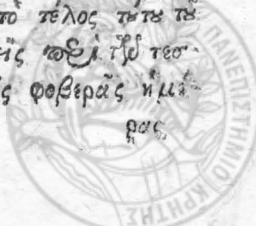 τὸ τέλος τούτου τοῦ
ῆς περὶ τῶν τεσ-
ς φοβερᾶς ἡμέ-
ρας
ΠΑΝΕΠΙΣΤΗΜΙΟ ΚΡΗΤΗΣ